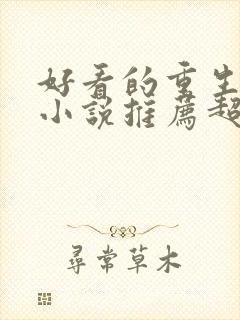 好看的重生
小說推薦超
尋常草木